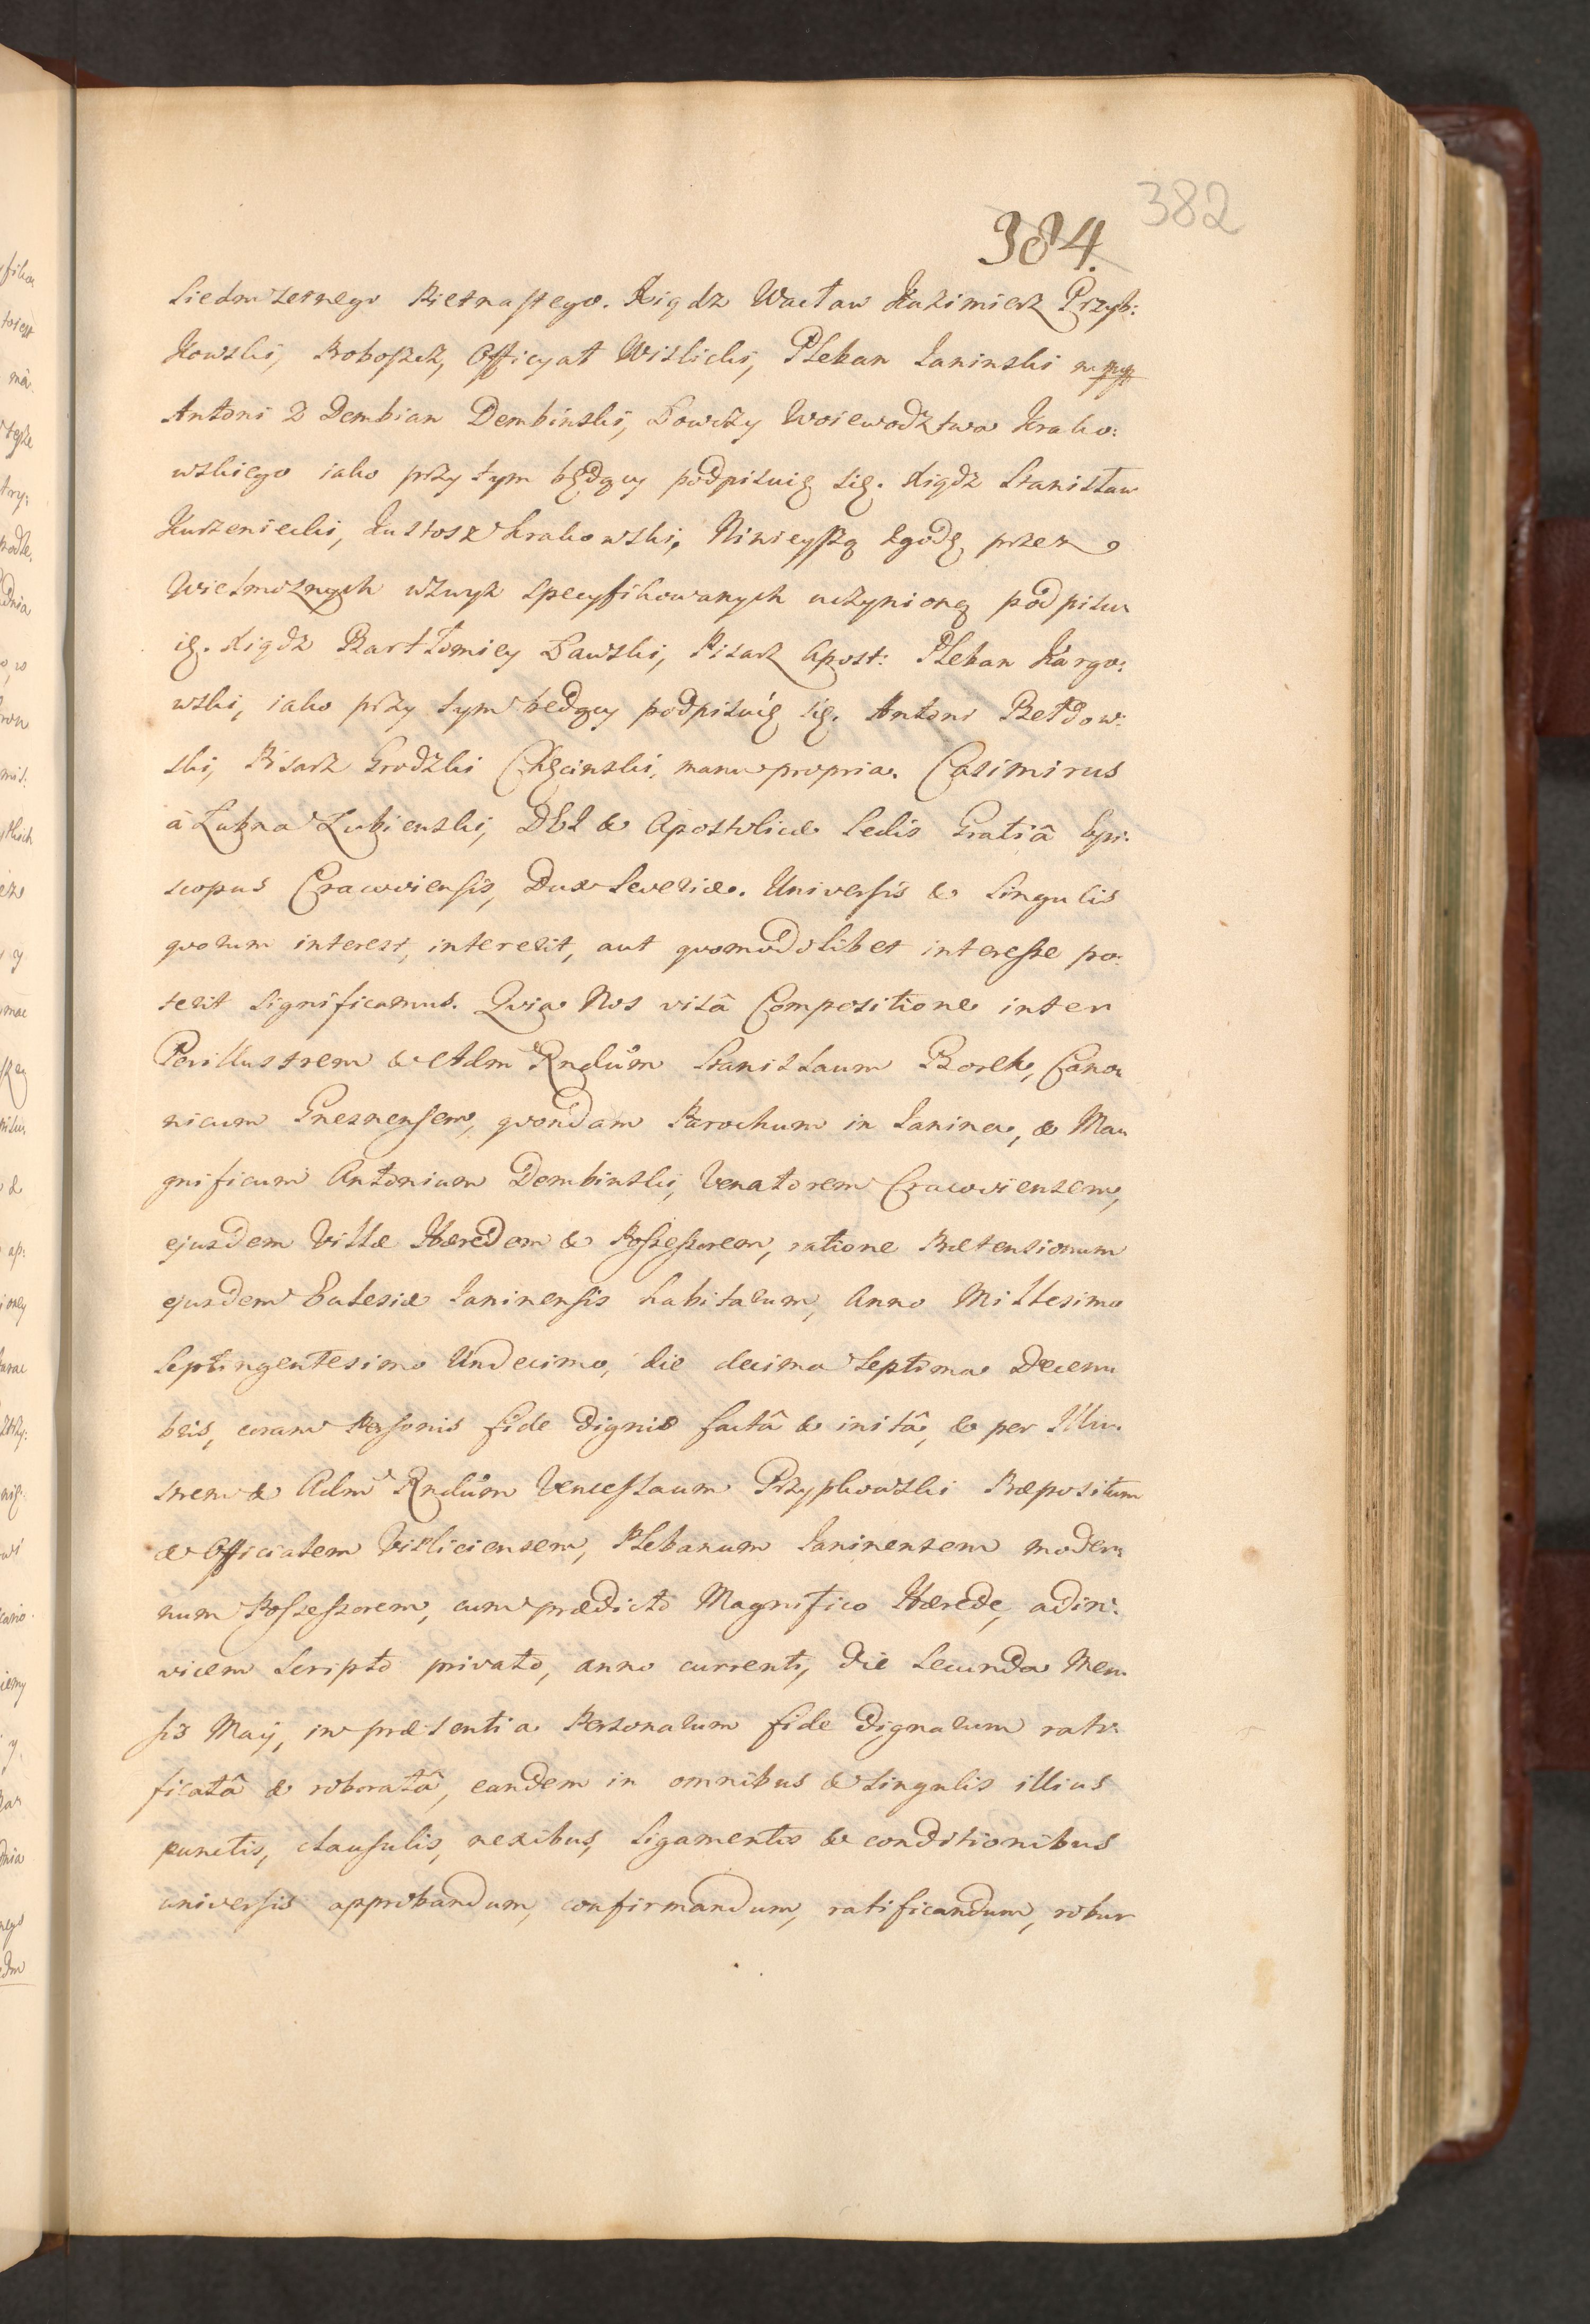 382
384.
Siedmsetnego Pietnastego. Xiądz Wacław Kazimierz Przyb:
kowski, Proboszcz, Officyał Wislicki, Pleban Janinski mpp
Antoni z Dembian Dembinski, Łowczy Woiewodztwa Krako:
wskiego iako przy tym będący podpisuię się. Xiądz Stanisław
Kurzeniecki, Kustosz Krakowski, Ninieyszą zgodę przez
Wielmoznych wzwyz specyfikowanych uczynioną podpisu
ię. Xiądz Bartłomiey Ławski, Pisarz Apost: Pleban Kargo:
wski, iako przy tym bedący podpisuię się. Antoni Bełdow:
ski, Pisarz Grodzki Chęcinski, manu propria. Casimirus
à Łubna Łubienski, DEI & Apostolicæ Sedis Gratiâ Epi:
scopus Cracoviensis, Dux Severiæ. Universis & Singulis
quorum interest, intererit, aut quomodolibet interesse po:
terit significamus. Quia Nos visâ Compositione inter
Perillustrem & Adm Rndum Stanislaum Borek, Cano
nicum Gnesnensem, quondam Parochum in Janina, & Ma
gnificum Antonium Dembinski, Venatorem Cracoviensem,
ejusdem Villæ Hæredem & Possessorem, ratione Prætensionum
ejusdem Ecclesiæ Janinensis habitarum, Anno Millesimo
Septingentesimo Undecimo, die decima Septima Decem
bris, coram Personis fide dignis factâ & initâ, & per Illu:
strem & Adm Rndum Venceslaum Przypkowski Præpositum
& Officialem Visliciensem, Plebanum Janinensem moder:
num Possessorem, cum prædicto Magnifico Hærede, adin:
vicem Scripto privato, anno currenti, die Secunda Men
sis Maij, in præsentia Personarum fide dignarum rati:
ficatâ & roboratâ, eandem in omnibus & singulis illius
punctis, clausulis, nexibus, ligamentis & conditionibus
universis approbandum, confirmandum, ratificandum, robur